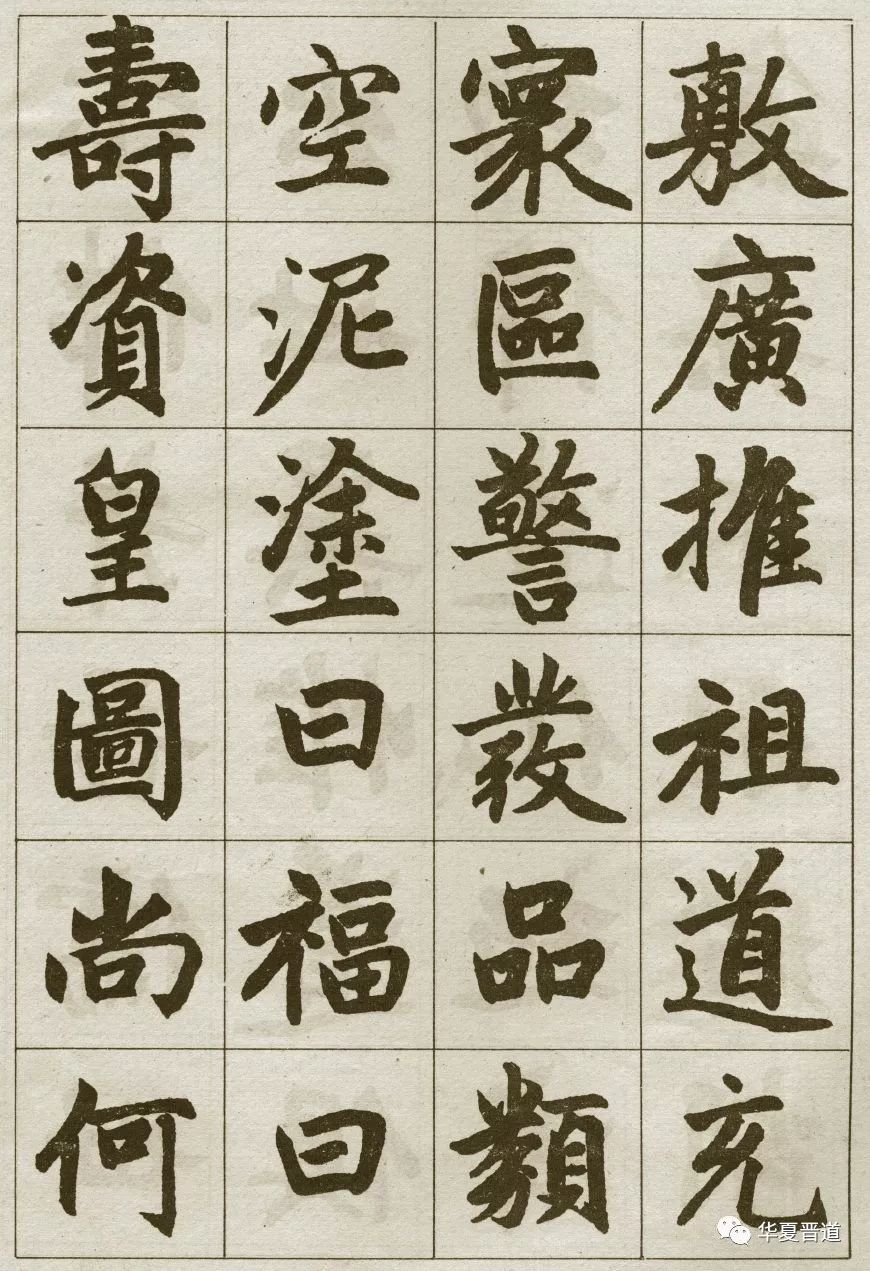 敷廣推祖道充
寰區警發品類
空泥塗曰福曰
壽資皇圖尚何
华夏晋道